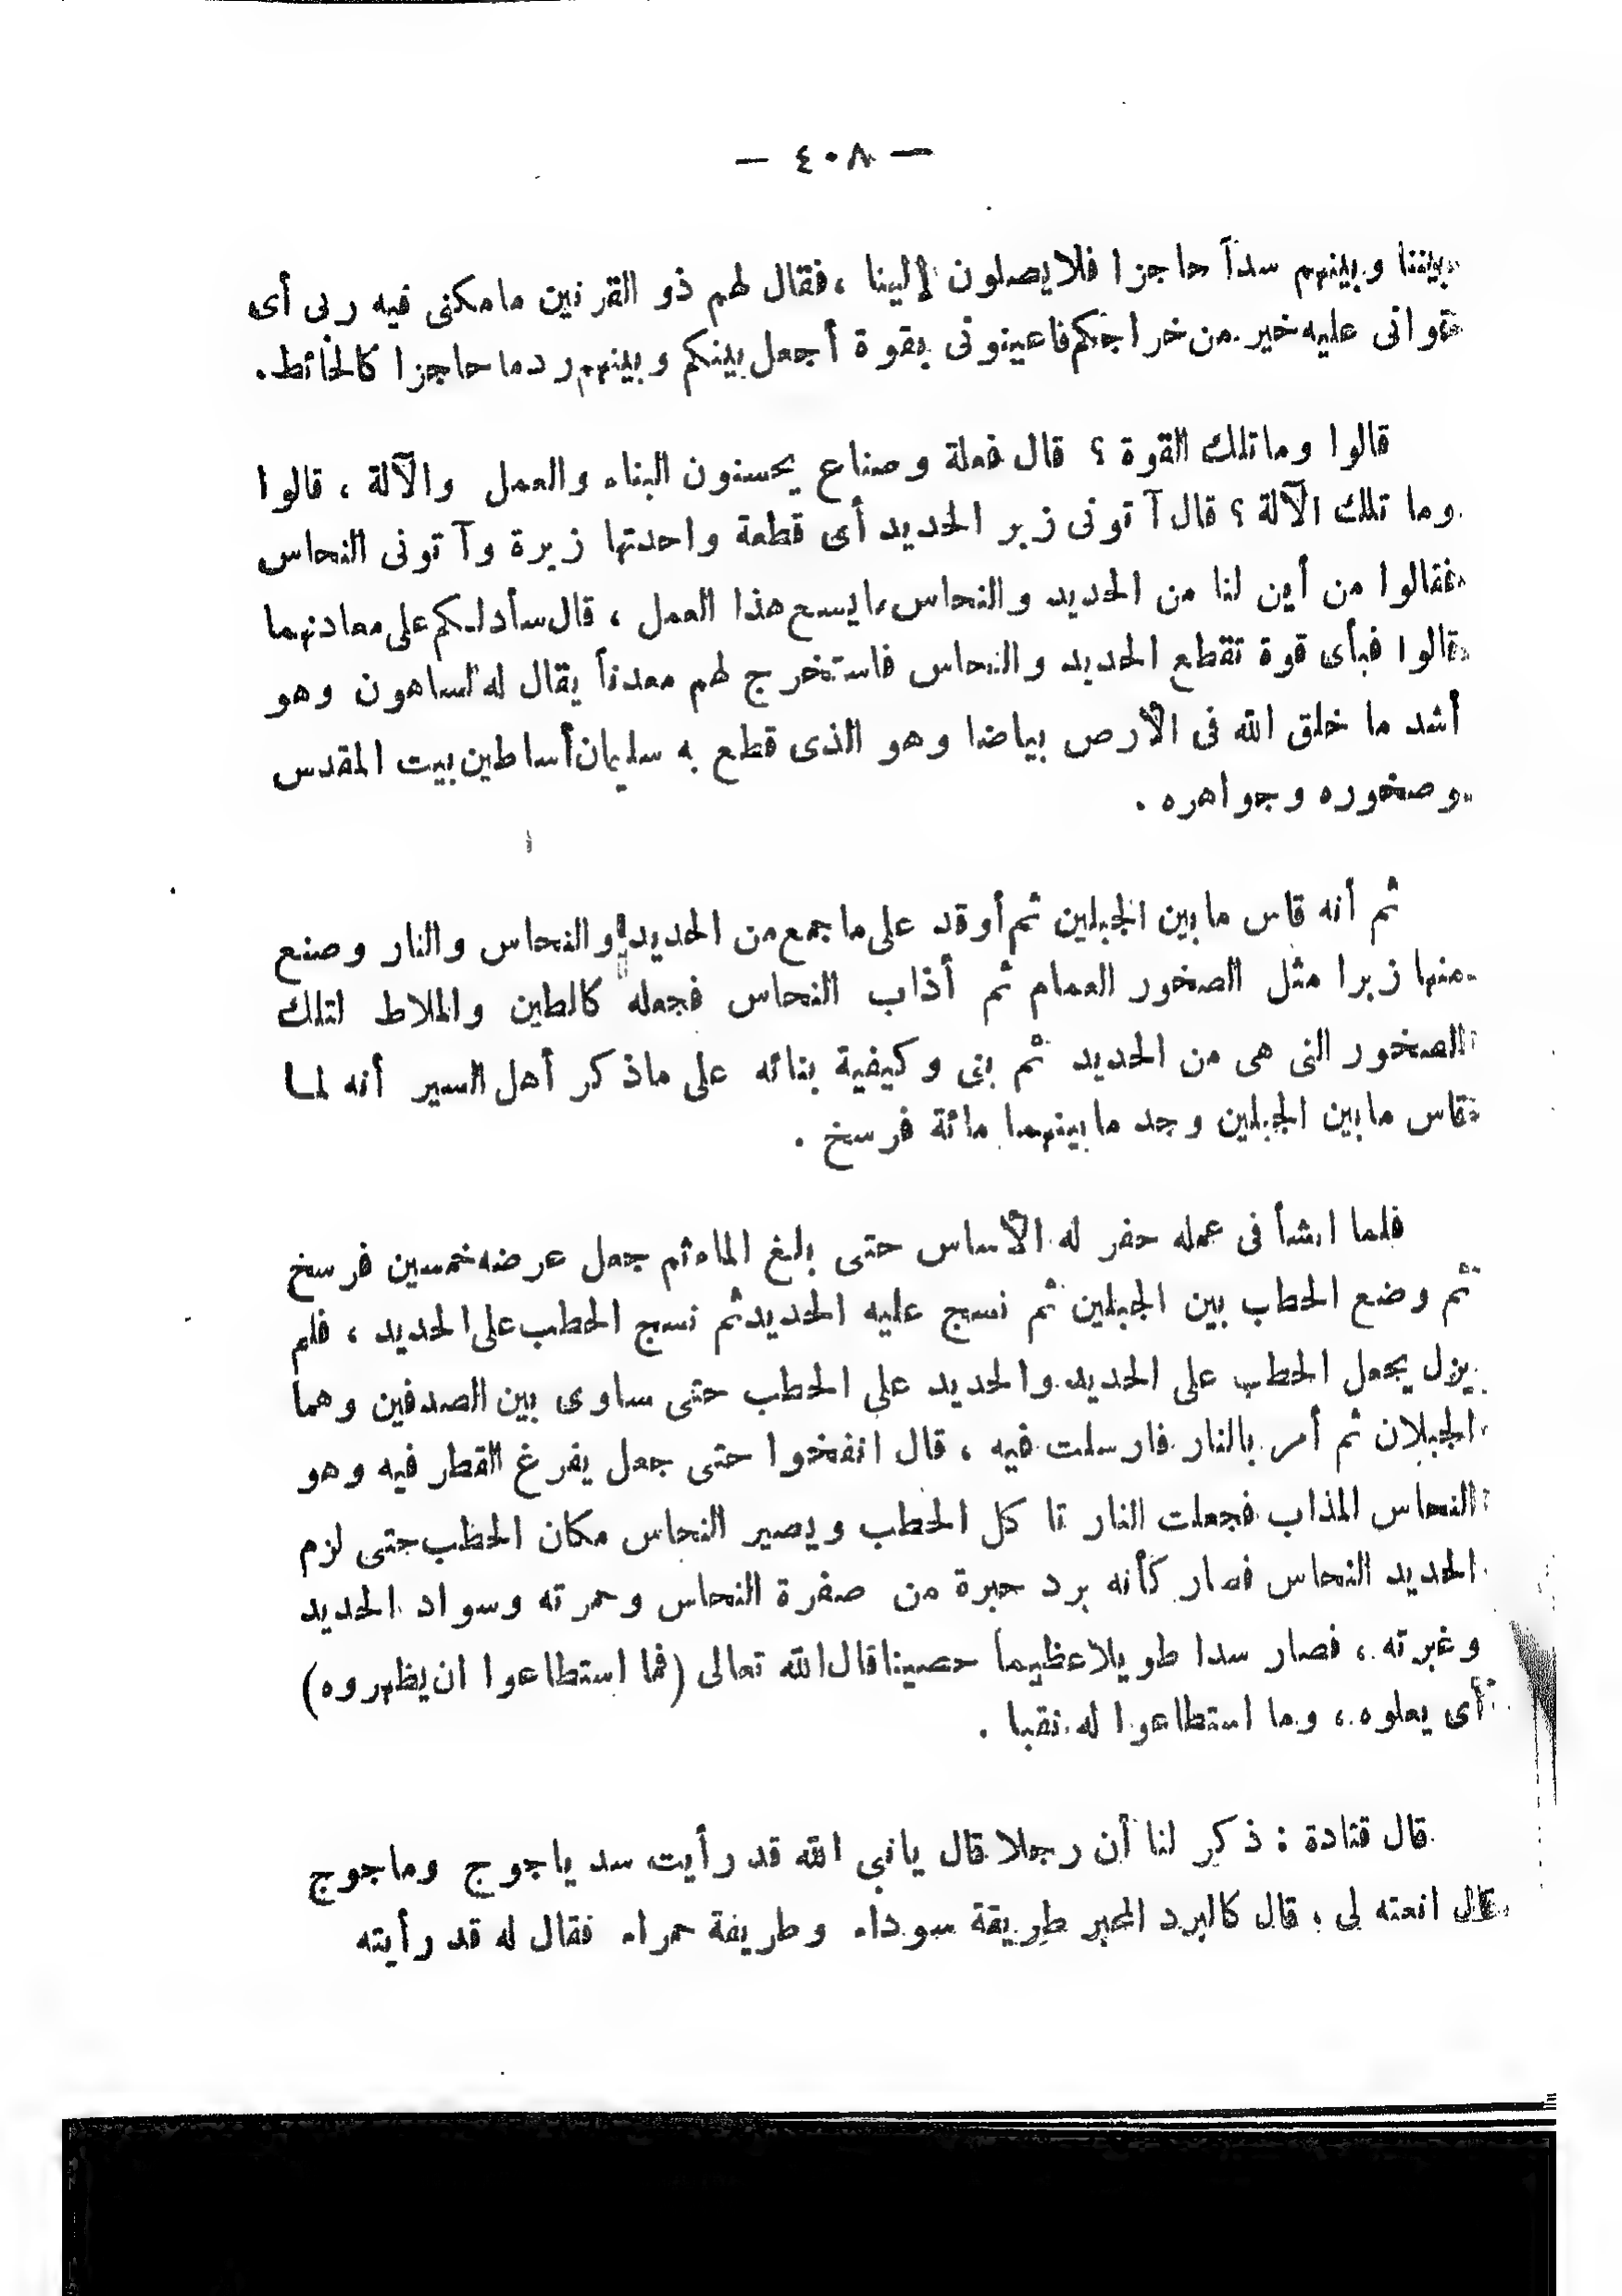 — ٤٠٨ —
بيننا وبينهم سداً حاجزا فلا يصلون إلينا ، فقال لهم ذو القرنين ما مكنى فيه ربى أى
قوانى عليه خير من خراجكم فاعينونى بقوة أجعل بينكم وبينهم ردما حاجزا كالحائط .
قالوا وما تلك القوة ؟ قال فعلة وصناع يحسنون البناء والعمل والآلة ، قالوا
وما تلك الآلة ؟ قال آتونى زبر الحديد أى قطعة واحدتها زبرة وآتونى النحاس
فقالوا من أين لنا من الحديد والنحاس ما يسع هذا العمل ، قال سأدلكم على معادنهما
قالوا فبأى قوة تقطع الحديد والنحاس فاستخرج لهم معدناً يقال له لساهون وهو
أشد ما خلق الله فى الأرض بياضا وهو الذى قطع به سليمان أساطين بيت المقدس
وصخوره وجواهره .
ثم أنه قاس ما بين الجبلين ثم أوقد على ما جمع من الحديد والنحاس والنار وصنع
منها زبرا مثل الصخور العمام ثم أذاب النحاس فجعله كالطين والملاط لتلك
الصخور التى هى من الحديد ثم بنى وكيفية بنائه على ما ذكر أهل السير أنه لما
قاس ما بين الجبلين وجد ما بينهما مائة فرسخ .
فلما انشأ فى عمله حفر له الأساس حتى بلغ الماء ثم جعل عرضه خمسين فرسخ
ثم وضع الحطاب بين الجبلين ثم نسج عليه الحديد ثم نسج الحطب على الحديد ، فلم
يزل يجعل الحطب على الحديد والحديد على الحطب حتى ساوى بين الصدفين وهما
الجبلان ثم أمر بالنار فارسلت فيه ، قال انفخوا حتى جعل يفرغ القطر فيه وهو
النحاس المذاب فجعلت النار تا كل الحطب ويصير النحاس مكان الحطب حتى لزم
الحديد النحاس فصار كأنه برد حبرة من صفرة النحاس وحمرته وسواد الحديد
وغبرته ، فصار سدا طويلا عظيما حصينا قال الله تعالى (فما استطاعوا ان يظهروه)
أى يعلوه ، وما استطاعوا له نقبا .
قال قتادة : ذكر لنا أن رجلا قال يا نبى الله قد رأيت سد ياجوج وماجوج
قال انعته لى ، قال كالبرد المحبر طريقة سوداء وطريقة حمراء فقال له قد رأيته